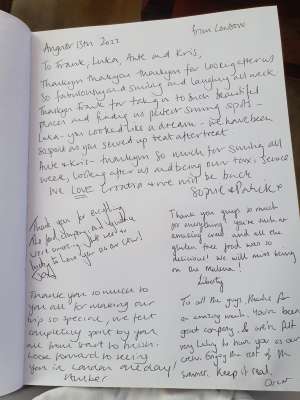 August 13th 2022
from London
To Frank, Luka, Ante and Kris,
Thankyou thankyou thankyou for looking after us
so fantastically and smiling and laughing all week
Thankyou Frank for taking us to such beautiful
places and finding us perfect swimming spots -
Luka - you cooked like a dream - we have been
so spoilt as you served up treat after treat
Ante & Kris - thankyou so much for smiling all
week, looking after us and being our taxi service.
We LOVE Croatia & we will be back
Sophie & Patrick x
Thank you for everything
The food,
were amazing
lucky to have you as our crew!
Thank you guys so much
for everything you're such an
amazing crew and all the
gluten free food was so
delicious! We will miss being
on the
Liberty
Thank you so much to
you all for making our
trip so special, we felt
completely spoilt by you
all from start to finish.
Look forward to seeing
you in London one day!
Amber
To all the guys, thanks for
an amazing week. You've been
good company, & we've felt
very lucky to have you as our
crew. Enjoy the rest of the
summer. Keep it real.